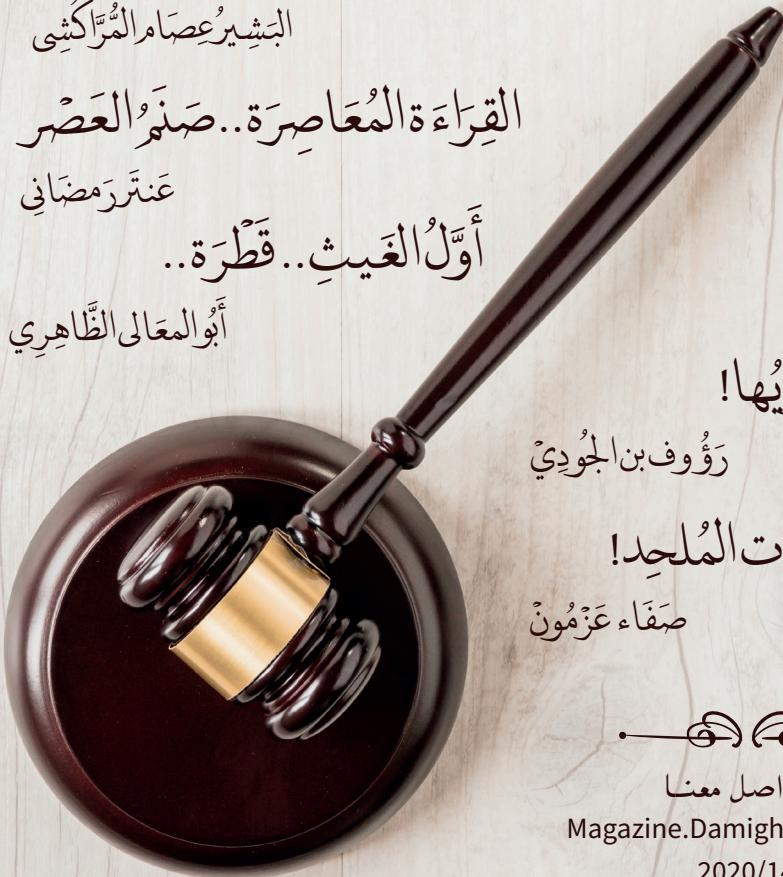 البَشِيرُ عِصَام المُرَّاكُشِى
القِرَاءَة المُعَاصِرَة..صَنَمُ العَصْر
عَنتَر رَمضَانِى
أَوَّلُ الغَيثِ..قَطْرَة..
أَبُو المعَالى الظَّاهِرِي
يُها!
رَؤُوف بن الجُودِيْ
ت المُلحِد!
صَفَاء عَزْمُونْ
اصل معنا
Magazine.Damigh
2020/1